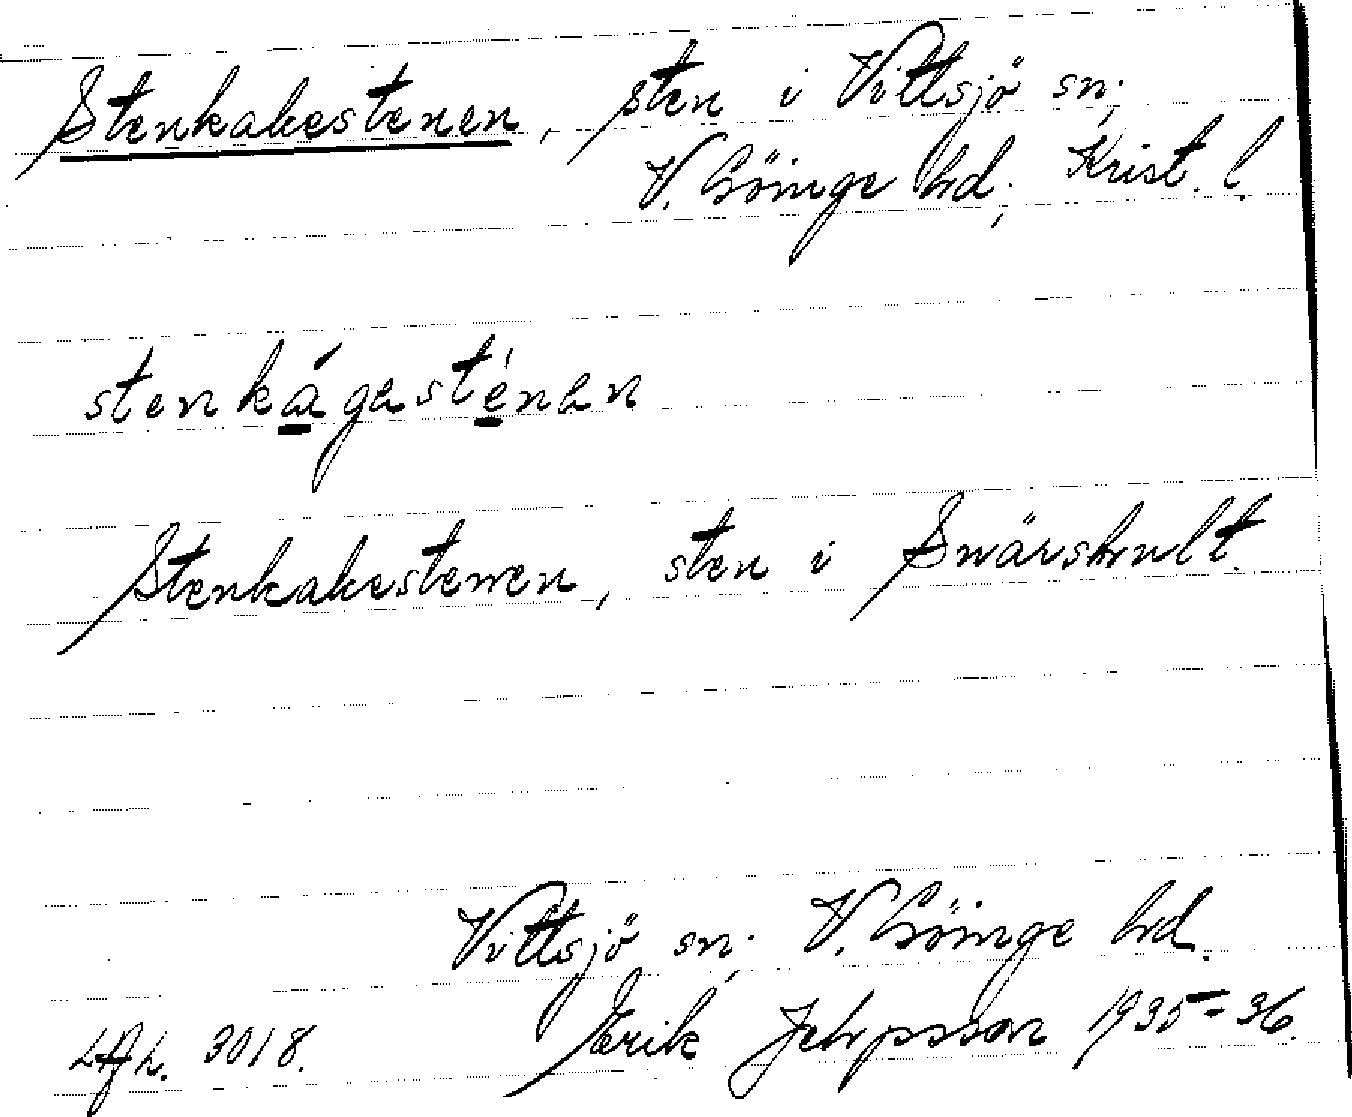 Stenkakestenen, sten i Vittsjö sn;
V. Göinge hd; Krist. l.
stenkágasténan
Stenkakestenen, sten i Snärshult.
Vittsjö sn; V. Göinge hd.
Erik Jehpsson 1935-36.
LAL. 3018.